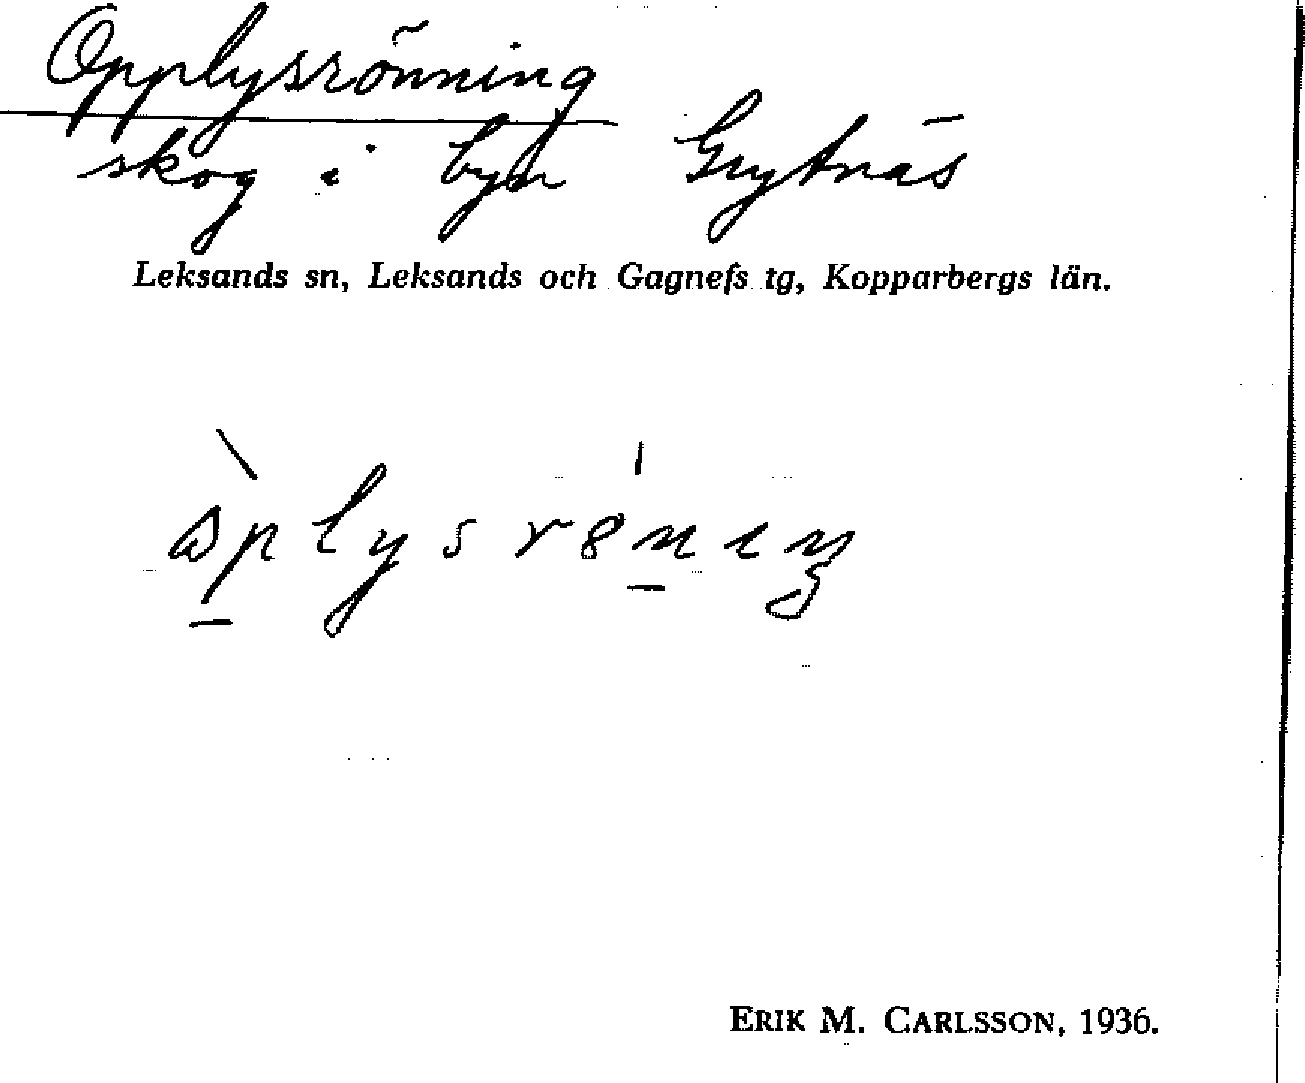 Opplysrönning
skog i byn Grytnäs
Leksands sn, Leksands och Gagnefs tg, Kopparbergs län.
ERIK M. CARLSSON, 1936.